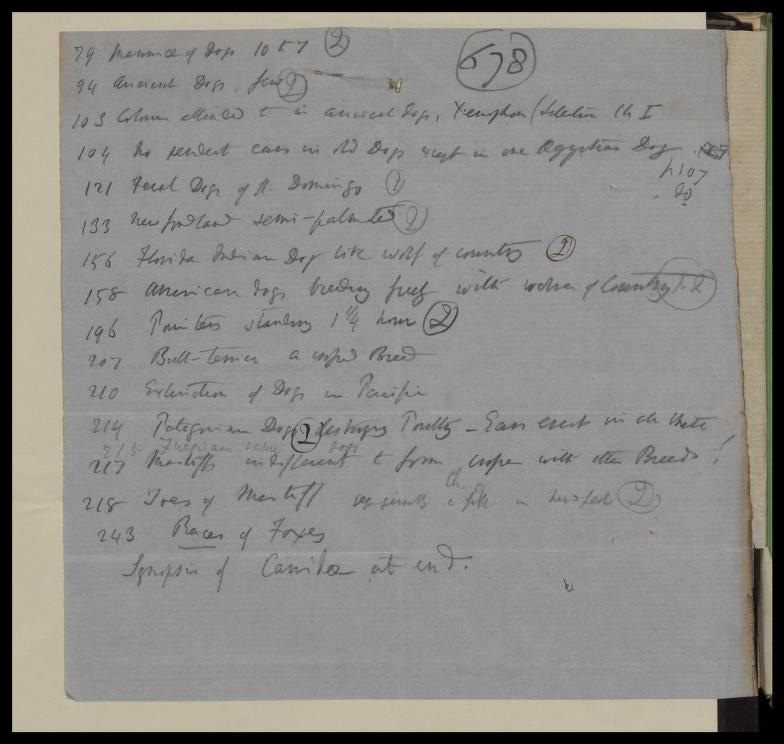 79 Mammae of Dogs 10 to 7 (2)
678
94 Ancient Dogs, few (2)
103 Colour attended to in ancient dogs, Xenophon (Selection Ch I
104 No pendent ears in old Dogs except in one Egyptian Dog
p 107
do
121 Feral Dogs of St. Domingo
133 Newfoundland semi-palmated (2)
156 Florida Indian Dog like wolf of country (2)
158 American dogs breeding freely with wolves of Country (2)
196 Pointers standing 1 1/4 hour (2)
207 Bull-terrier a crossed Breed
210 Extinction of Dogs in Pacific
214 Patagonian Dogs (2) destroying Poultry — Ears erect in all these
215 Fuegians value dogs
217 Mastiffs indifferent to from cross with other Breeds!
218 Toes of Mastiff a fifth on hind feet (2)
243 Races of Foxes
Synopsis of Canidae at end.